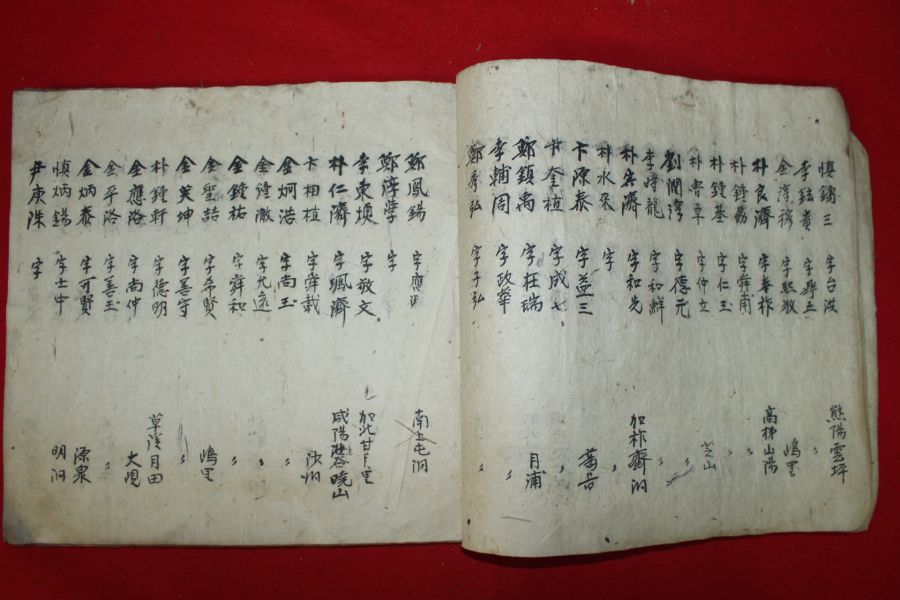 慎鏽三 字台波 熊陽雲坪
李鉉貴 字舜五 〃
金淳稷 字熙敬 嶋里
朴良濟 字春柞 高梯山陽
朴鍾昌 字舜甫 〃
朴鍾基 字仁玉 〃
朴魯草 字仲立 芝山
劉潤淳 字德元 〃
李時龍 字和鮮 〃
朴宗濟 字和允 加祚齊洞
朴永來 字
卞源泰 字益三
卞奎植 字成七 〃
鄭鎮禹 字在瑞 月浦
李輔周 字政華 〃
鄭秀弘 字子弘 〃
鄭鳳錫 字應 南上屯洞
鄭淳學 字
李東埂 字敬文 加北甘月里
朴仁濟 字鳳濟 咸陽 曉山
卞相植 字舜載 沙洞
金炯浩 字尚玉 〃
金鍾澈 字允遠 〃
金鍾祐 字舜和 〃
金聖喆 字希賢 嶋里
金英坤 字善守 〃
朴鍾軒 字德明 草溪月田
金應洛 字尚仲 大峴
金平洛 字善玉 〃
金炳泰 字可賢 源泉
慎炳錫 字士中 明洞
尹庚洙 字